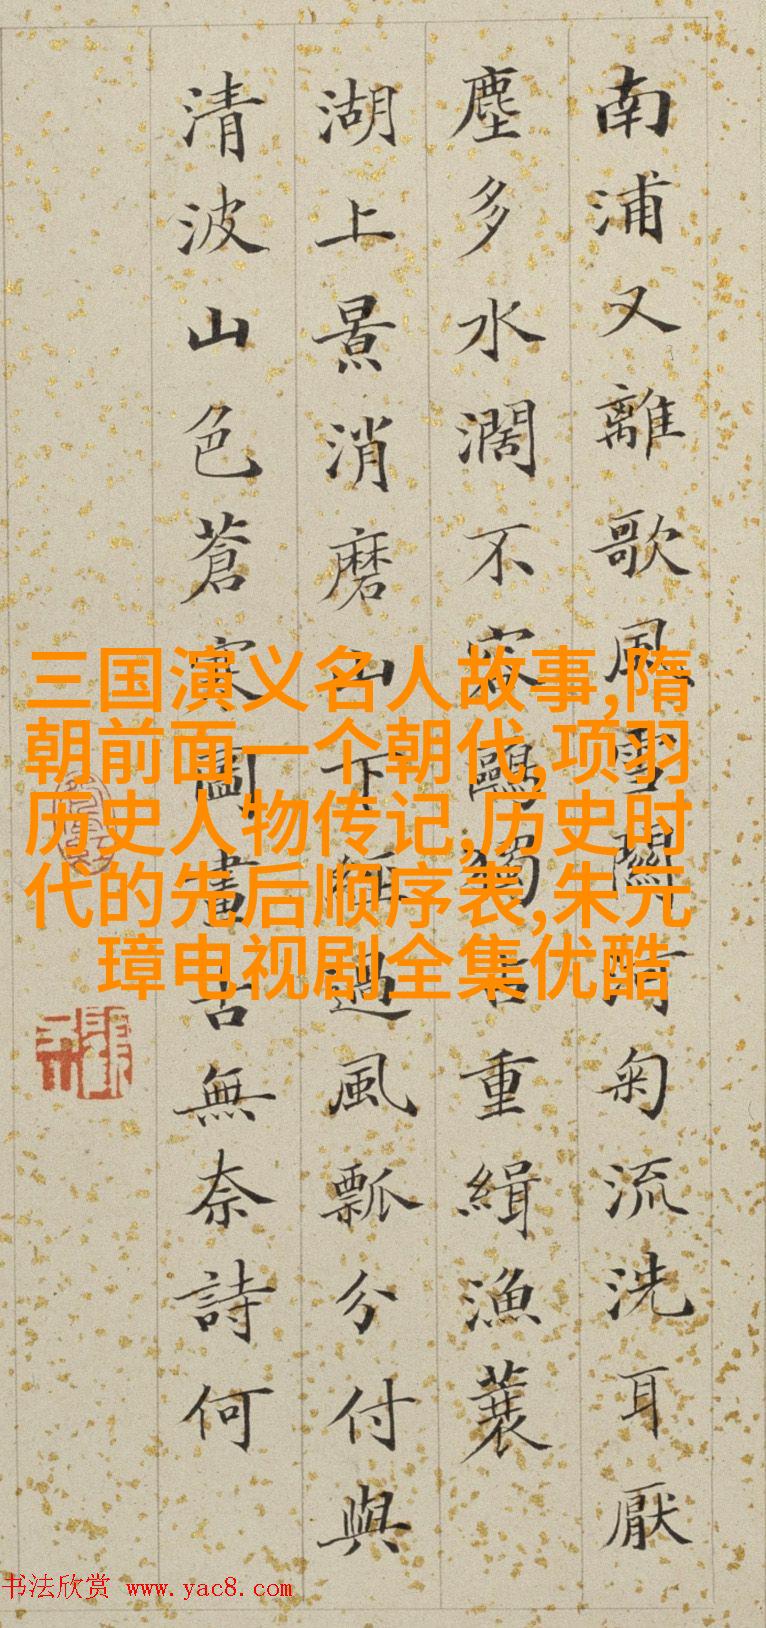 南浦又離歌風雪關河匊流洗耳厭
塵多水濶不容鷗獨占重緝漁蓑
湖上景消磨山下經過風瓢分付與
清波山色蒼寒圖畫古無奈詩何
三国演义名人故事,隋
朝前面一个朝代,项羽
历史人物传记,历史时
代的先后顺序表,朱元
璋电视剧全集优酷
书法欣赏 www.yac8.com